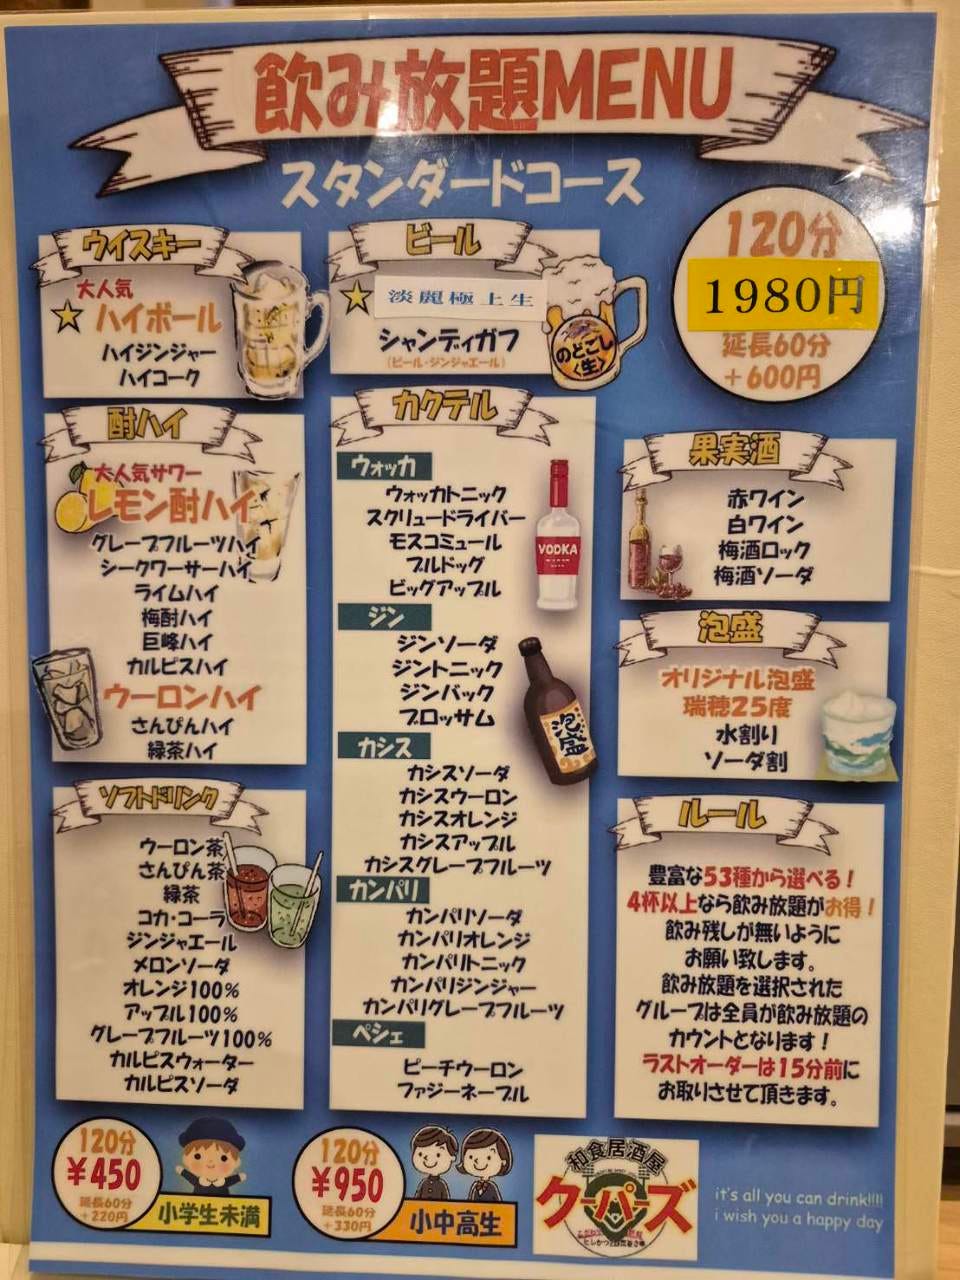 飲み放題MENU
スタンダードコース
120分
1980円
延長60分
+600円
ウイスキー
大人気
ハイボール
ハイジンジャー
ハイコーク
ビール
淡麗極上生
シャンディガフ
(ビール・ジンジャエール)
のどごし
〈生〉
酎ハイ
大人気サワー
レモン酎ハイ
グレープフルーツハイ
シークワーサーハイ
ライムハイ
梅酎ハイ
巨峰ハイ
カルピスハイ
ウーロンハイ
さんぴんハイ
緑茶ハイ
カクテル
ウォッカ
ウォッカトニック
スクリュードライバー
モスコミュール
ブルドッグ
ビッグアップル
VODKA
ジン
ジンソーダ
ジントニック
ジンバック
ブロッサム
カシス
カシスソーダ
カシスウーロン
カシスオレンジ
カシスアップル
カシスグレープフルーツ
カンパリ
カンパリソーダ
カンパリオレンジ
カンパリトニック
カンパリジンジャー
カンパリグレープフルーツ
ペシェ
ピーチウーロン
ファジーネーブル
泡盛
果実酒
赤ワイン
白ワイン
梅酒ロック
梅酒ソーダ
泡盛
オリジナル泡盛
瑞穂25度
水割り
ソーダ割
ソフトドリンク
ウーロン茶
さんぴん茶
緑茶
コカ・コーラ
ジンジャエール
メロンソーダ
オレンジ100%
アップル100%
グレープフルーツ100%
カルピスウォーター
カルピスソーダ
ルール
豊富な53種から選べる!
4杯以上なら飲み放題がお得!
飲み残しが無いように
お願い致します。
飲み放題を選択された
グループは全員が飲み放題の
カウントとなります!
ラストオーダーは15分前に
お取りさせて頂きます。
120分
¥450
延長60分
+220円
小学生未満
120分
¥950
延長60分
+330円
小中高生
和食居酒屋
クーパーズ
it's all you can drink!!!!
i wish you a happy day